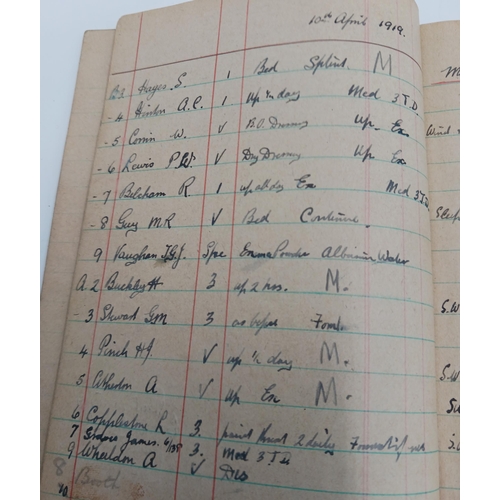 10th April 1919.
B3 Hayes S. 1 Bed Splint M
- 4 A.C. 1 up ½ day Med 3 T.D.
- 5 W. ✓ B.O. Dressing Up. Ex
- 6 Lewis P.W. ✓ Dry Dressing Up. Ex
- 7 Belcham R 1 up all day Ex Med 3 T.D.
- 8 Guy M.R ✓ Bed Continue.
9 Vaughan T.G.J. Spe Powder Albumin Water
A 2 Buckley H 3 up 2 hrs. M.
- 3 Stewart G.M 3 as before
4 Pinch H.J. ✓ up ½ day M.
5 A ✓ Up Ex M.
6 Copplestone R 3. paint throat 2 daily
7 Graves James. 3. Med 3 T.D
9 Wheeldon A ✓ Dis
8 Booth
10